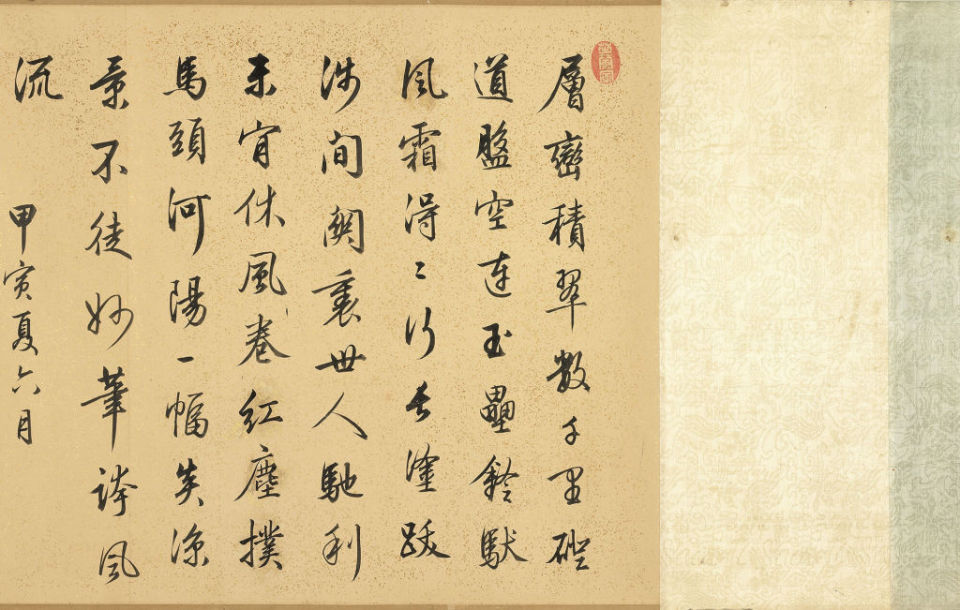 層巒積翠數千里磴
道盤空連玉壘鈴馱
風霜淂〻行長塗跋
涉間関裏世人馳利
未肯休風卷紅塵撲
馬頭河陽一幅
景不徒妙筆誇風
流
甲寅夏六月